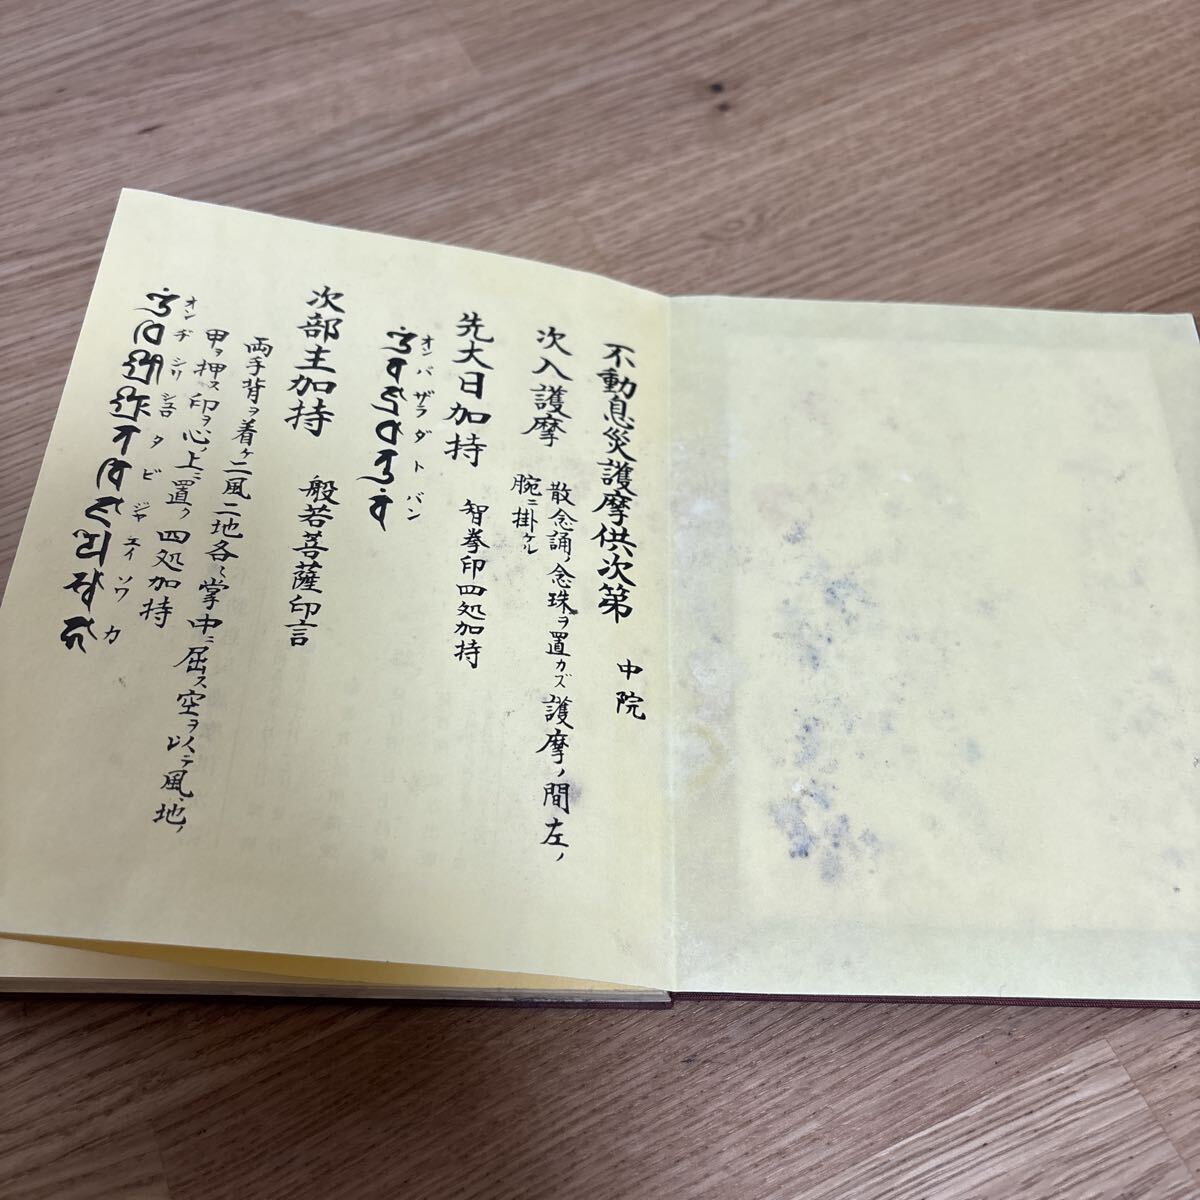 不動息災護摩供次第　中院
次入護摩　散念誦ノ念珠ヲ置カズ護摩ノ間左ノ
腕ニ掛クル
先大日加持　智拳印四処加持
オンバザラダトバン
次部主加持　般若菩薩印言
両手背ヲ着ケ二風二地各〻掌中ニ屈ス空ヲ以テ風、地ノ
甲ヲ押ス印ヲ心ノ上ニ置ク　四処加持
オンヂシリシュロタビジャエイソワカ